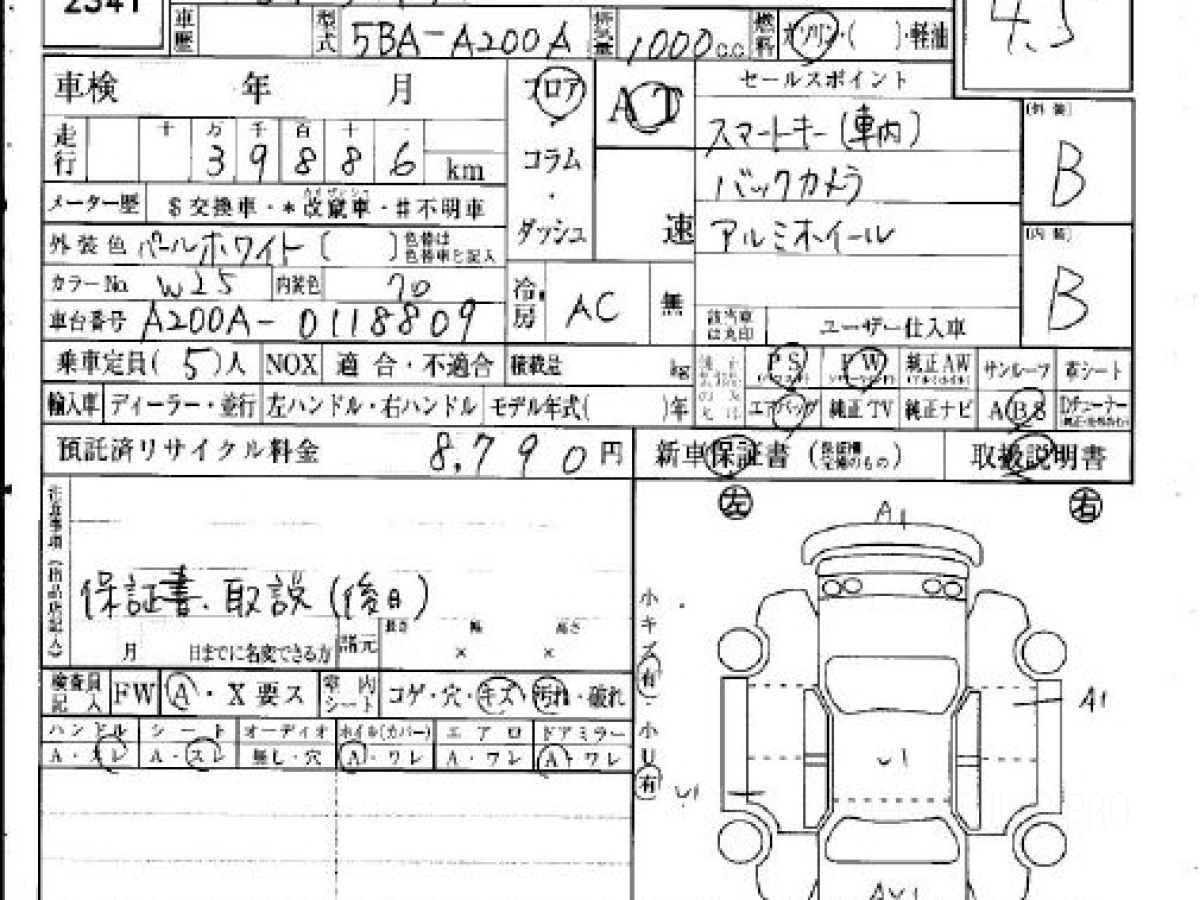 2341
車歴 型式 5BA-A200A 排気量 1000c.c. 燃料 ガソリン・( )・軽油
4.5
車検 年 月 フロア AT セールスポイント
スマートキー(車内) (外装)
走行 十 万 千 百 十 一 コラム B
3 9 8 8 6 km ・ バックカメラ
メーター歴 $交換車・*改竄車・#不明車 ダッシュ 速 アルミホイール (内装)
外装色 パールホワイト ( ) 色替は色替車と記入 B
カラーNo. W25 内装色 20 冷房 AC 無 該当車は丸印 ユーザー仕入車
車台番号 A200A-0118809
乗車定員(5)人 NOX 適合・不適合 積載量 kg PS PW 純正AW サンルーフ 革シート
輸入車 ディーラー・並行 左ハンドル・右ハンドル モデル年式( )年 エアバッグ 純正TV 純正ナビ ABS
預託済リサイクル料金 8,790円 新車保証書 取扱説明書
左 右
A1
保証書、取説(後日)
月 日までに名変できる方 諸元 長さ × 幅 × 高さ
小キズ有・小U有
検査員記入 FW A・X要ス 車内シート コゲ・穴・キズ・汚れ・破れ
A1
ハンドル シート オーディオ ホイル(カバー) エアロ ドアミラー
A・スレ A・スレ 無し・穴 A・ワレ A・ワレ A・ワレ
U1
U1
AU1